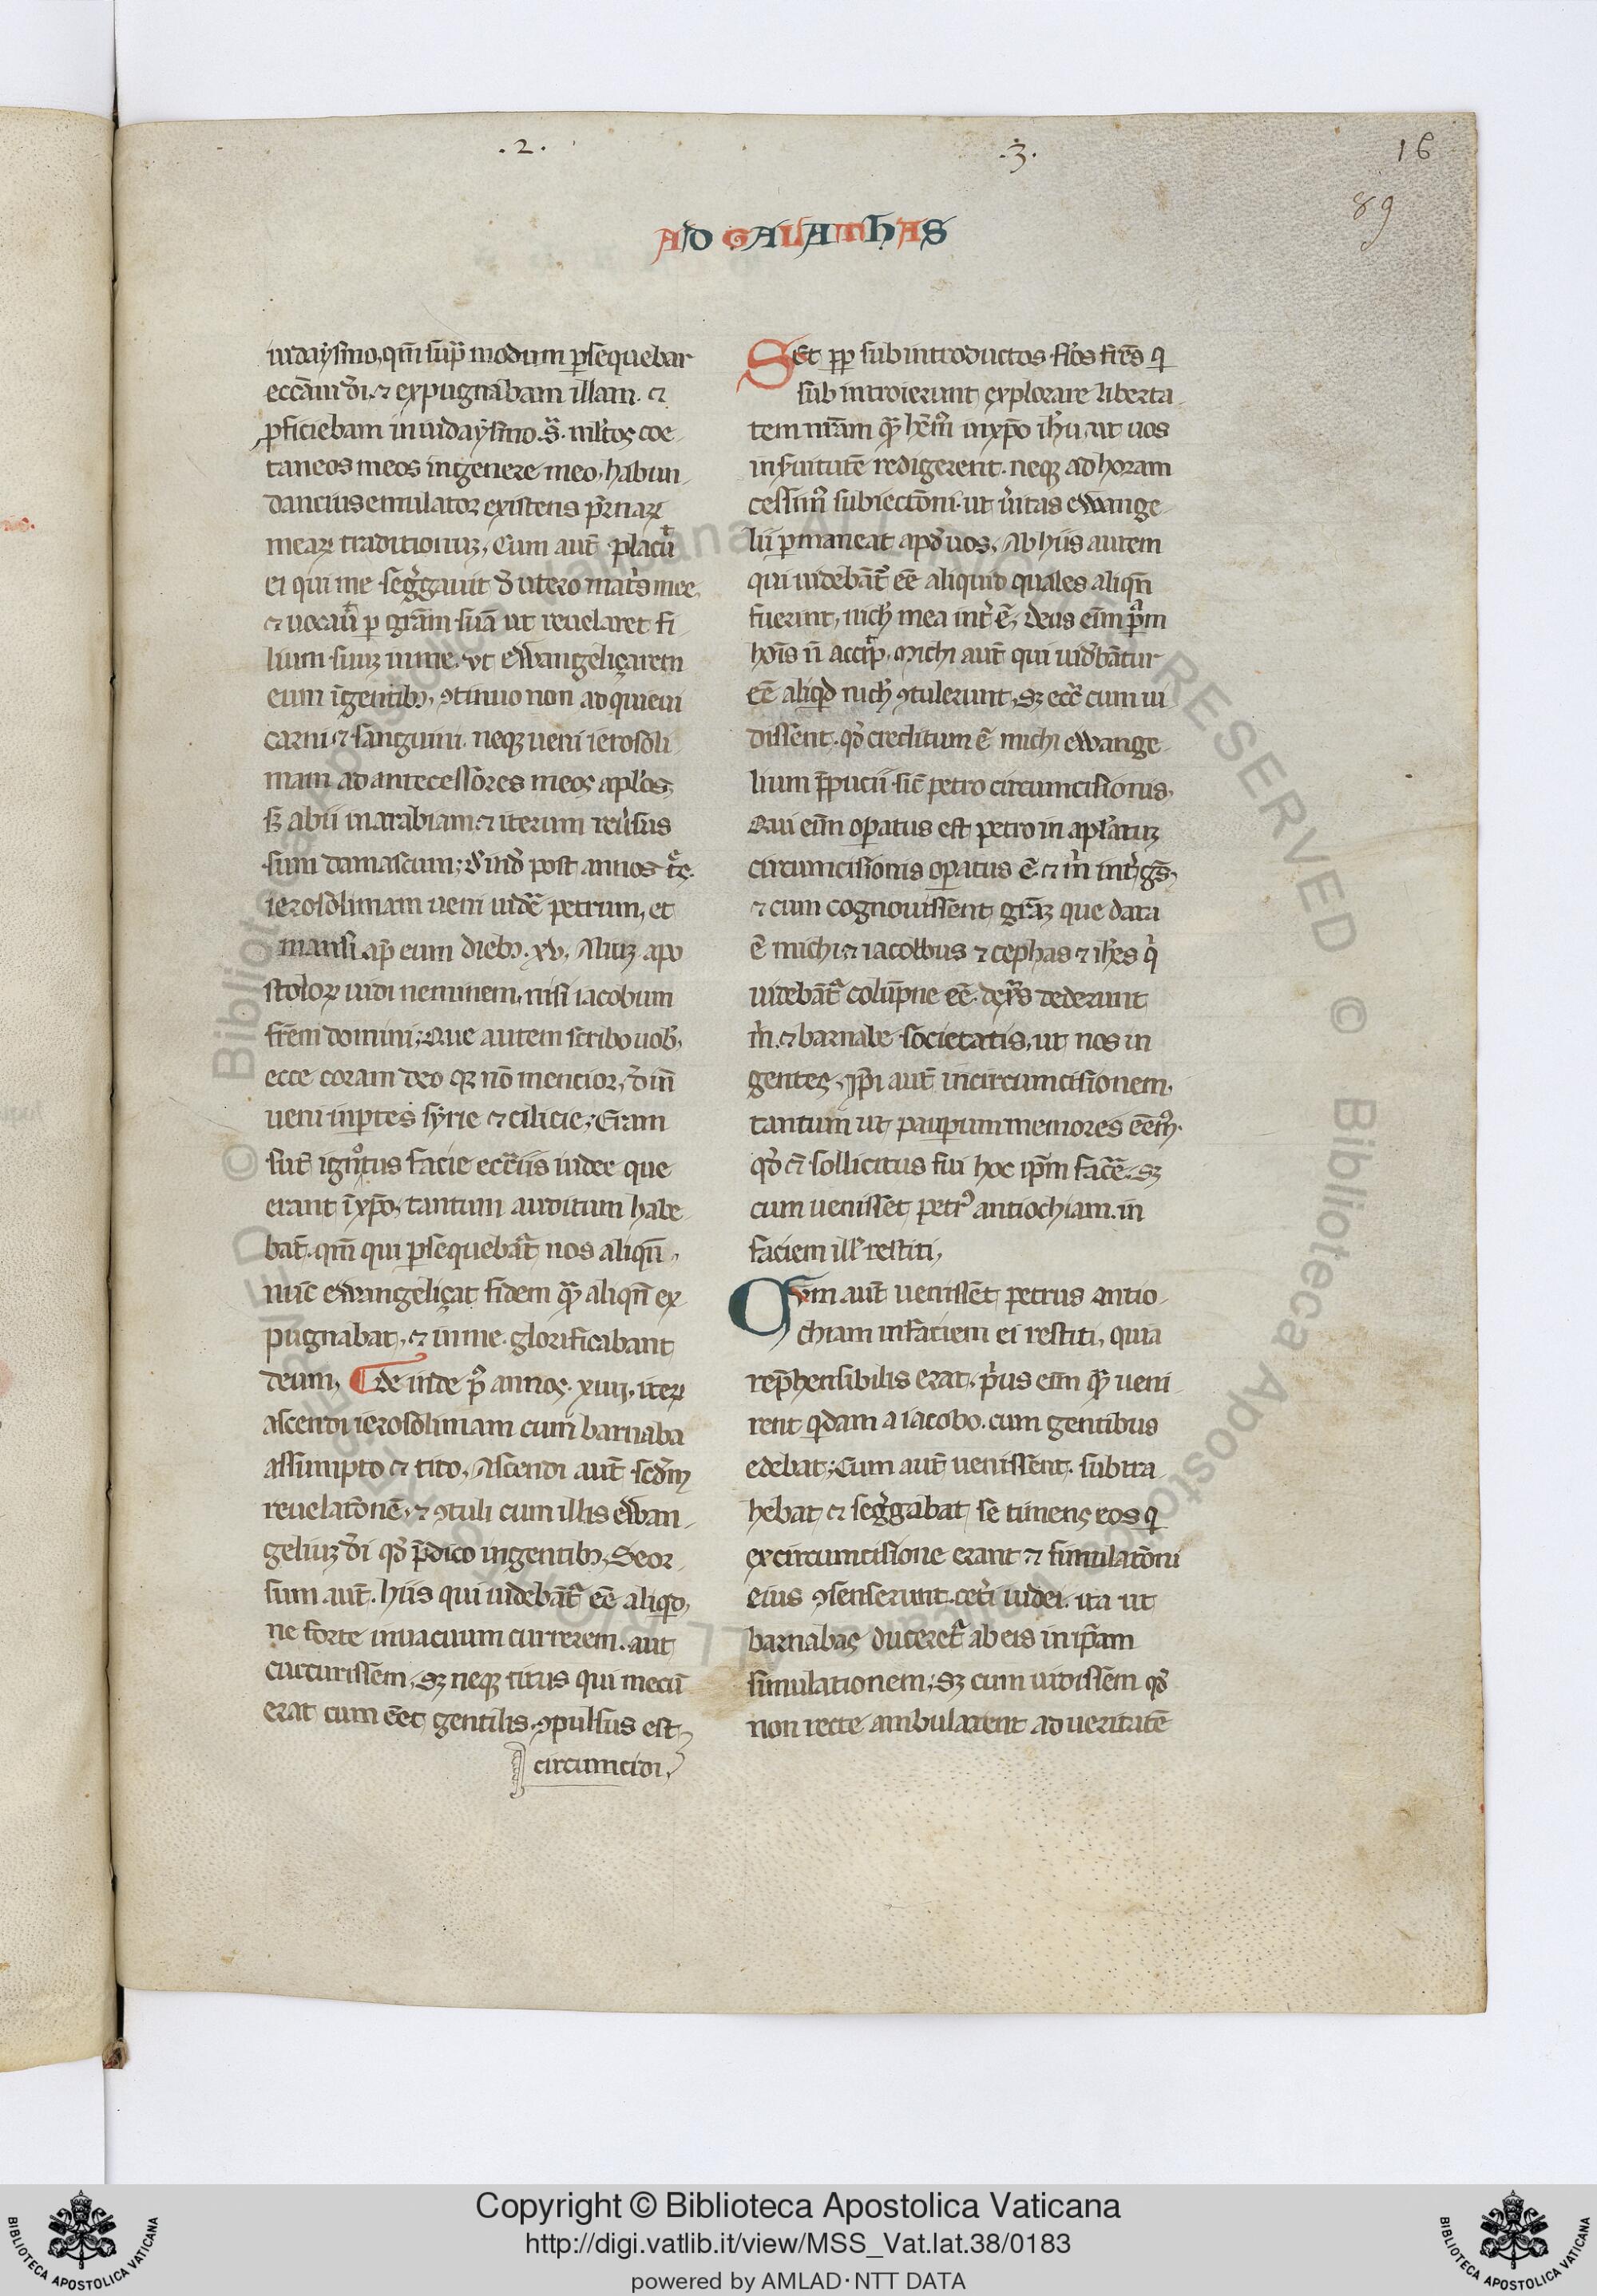 .2. .3. 16
89
AD GALATHAS
iudaysmo, qm̄ supͣ modum ꝑsequebar
eccl̄am dī. ⁊ expugnabam illam. ⁊
ꝓficiebam in iudaysmo. sͣ. ml̄tos coe
taneos meos in genere meo. habun
dancius emulator existens pͣrnaꝝ
meaꝝ traditionuꝫ. Cum aut̄ placuͭ
ei qui me segͣgauit d̄ utero matͥs mee.
⁊ uocauͭ ꝑ gr̄am suā ut reuelaret fi
lium suuꝫ in me. vt ewangeliçarem
eum ī gentibꝫ, ꝯtinuo non adquieui
carni ⁊ sanguini. neqꝫ ueni ierosoli
mam ad antecessores meos apl'os,
sꝫ abii in arabiam. ⁊ iterum reu̓sus
sum damascum; d̓ind̓ post annos tͣes.
ierosolimam ueni uidē petrum, et
mansi apͩ eum diebꝫ. xv. Aliuꝫ apo
stoloꝝ uidi neminem, nisi iacobum
fr̄em domini; Que autem scribo uob̓,
ecce coram deo qꝫ nō mencior, d̓in̄
ueni in ꝑtes syrie ⁊ cilicie; Eram
aut̄ ignͦtus facie eccl̄iis iudee que
erant ī xp̄o, tantum auditum habe
bāt. qm̄ qui ꝑsequebatͬ nos aliqn̄,
nūc ewangeliçat fidem qͣm aliqn̄ ex
pugnabat, ⁊ in me glorificabant
deum, ¶ de inde pꝰ annos. xiiij. iteꝝ
ascendi ierosolimam cum barnaba
assumpto ⁊ tito, Ascendi aut̄ sed̄m
reuelatōnē, ⁊ ꝯtuli cum illis ewan
geliuꝫ dī qd̓ p̄dico in gentibꝫ, Seor
sum aut̄. hiis qui uidebātͬ eē aliqͥd,
ne forte in uacuum currerem. aut
cucurissem, Sꝫ neqꝫ titus qui mecū
erat cum eēt gentilis, ꝯpulsus est
circumcidi,
SEt ꝓp̄ subintroductos fl̓os fr̄es qͥ
subintroierunt explorare liberta
tem nr̄am qͣm hēmꝰ in xp̄o ih̄u, ut uos
in s̓uitutē redigerent. neqꝫ ad horam
cessimꝰ subiectōni. ut u̓itas ewange
lii ꝑmaneat apd̓ uos. Ab hiis autem
qui uidebātͬ eē aliquid quales aliqn̄
fuerint, nich̓ mea int̓ ē, deus eīm ꝑsͦm
hoīs n̄ accipͭ. michi aut̄ qui uidebātur
eē aliqͥd nich̓ ꝯtulerunt, Sꝫ ecͨ cum ui
dissent. qd̓ creditum ē michi ewange
lium p̄pucii sic̄ petro circumcisionis,
Qui eīm oꝑatus est petro in apl'atuꝫ
circumcisionis oꝑatus ē. ⁊ m̓ int̓ gēs,
⁊ cum cognouissent gr̄aꝫ que data
ē michi ⁊ iacobus ⁊ cephas ⁊ ioh̓es qͥ
uidebātͬ colūpne eē. dextͣs dederunt
m̓. ⁊ barnabe societatis, ut nos in
gentes, ip̄i aut̄ in circumcisionem,
tantum ut pauꝑum memores eēmꝰ.
qd̓ ⁊ sollicitus fui hoc ip̄m facē. Sꝫ
cum uenisset petrꝰ antiochiam. in
faciem ill̓ restiti,
Cvm aut̄ uenissēt petrus antio
chiam in faciem ei restiti, quia
rep̄hensibilis erat. pͥus eīm qͣm ueni
rent qͥdam a iacobo. cum gentibus
edebat; Cum aut̄ uenissent. subtra
hebat ⁊ segͣgabat se timens eos qͥ
ex circumcisione erant ⁊ simulatōni
eius ꝯsenserunt. cet̓i iudei. ita ut
barnabas duceretͬ ab eis in ip̄am
simulationem; Sꝫ cum uidissem qd̓
non recte ambularent ad ueritatē
Copyright © Biblioteca Apostolica Vaticana
http://digi.vatlib.it/view/MSS_Vat.lat.38/0183
powered by AMLAD·NTT DATA